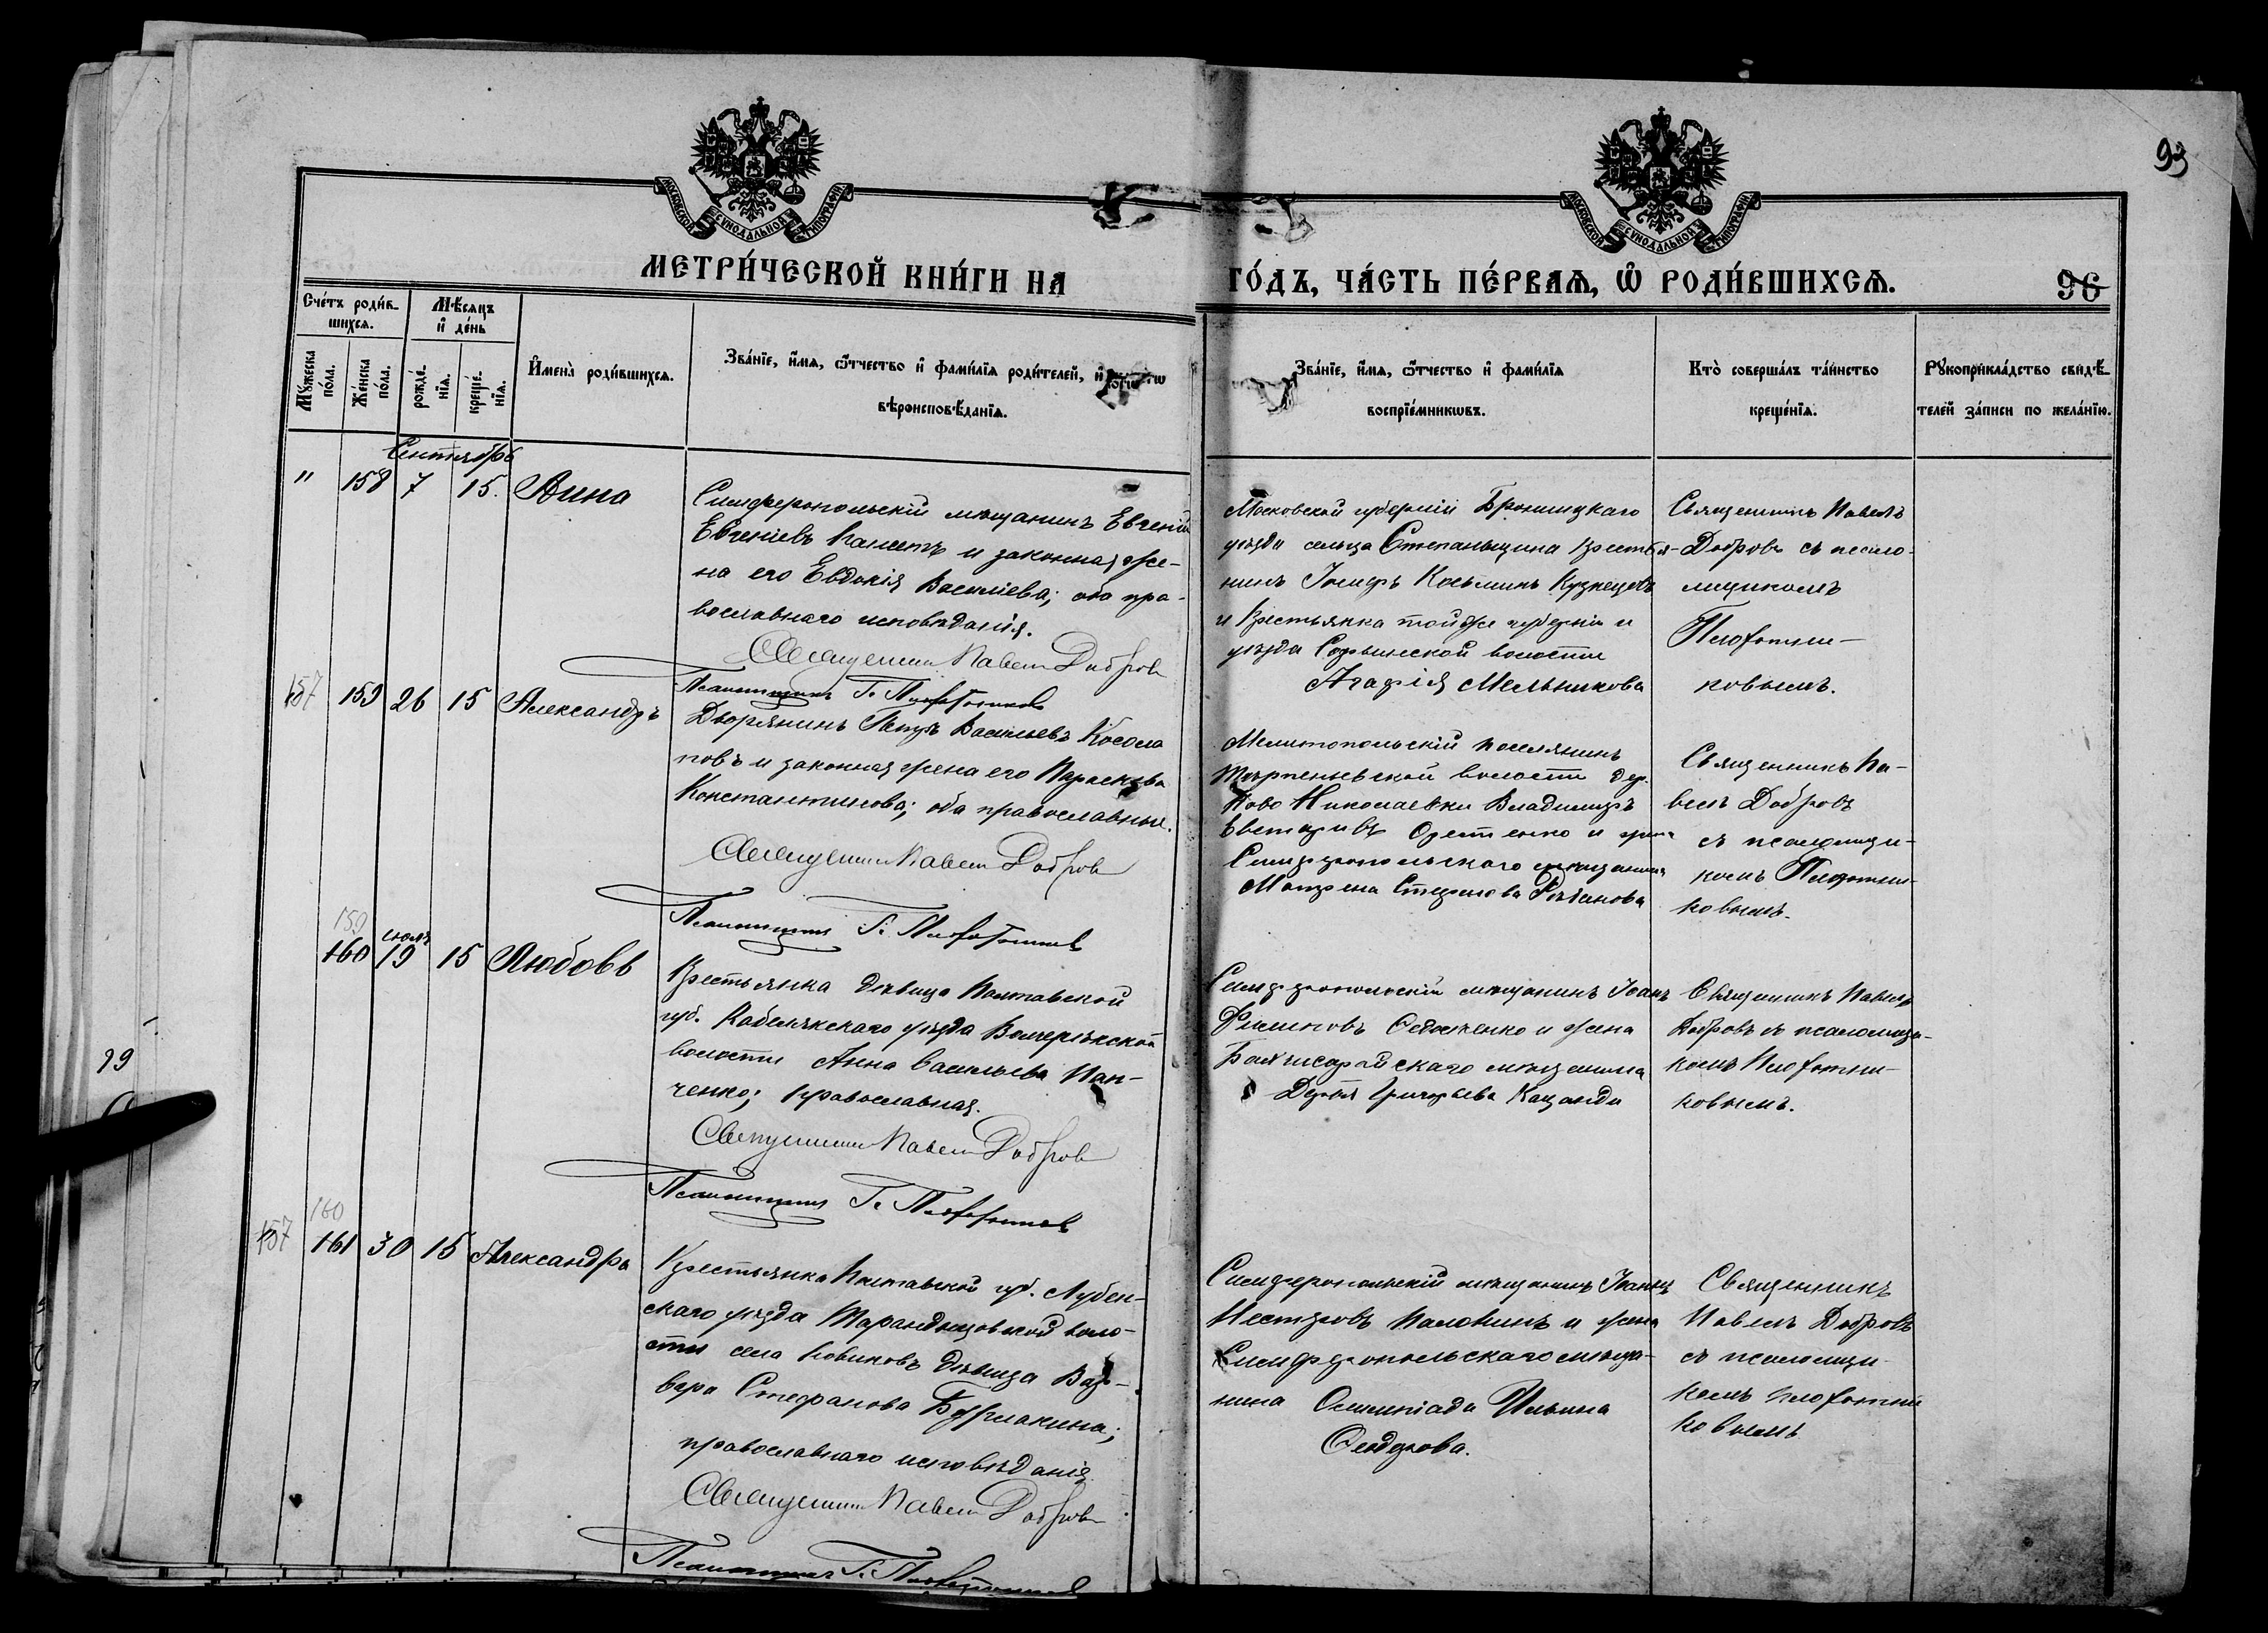 93
МОСКОВСКОЙ СѴНОДАЛЬНОЙ ТИПОГРАФІИ
МОСКОВСКОЙ СѴНОДАЛЬНОЙ ТИПОГРАФІИ
МЕТРИ́ЧЕСКОЙ КНИ́ГИ НА ГО́ДЪ, ЧА́СТЬ ПЕ́РВАѦ, Ѡ҆ РОДИ́ВШИХСѦ.
96
Сче́тъ роди́в-
шихсѧ.
Мꙋ́жеска по́ла.
Же́нска по́ла.
Мѣ́сѧцъ
и҆ де́нь
рожде́-
нїѧ.
креще́-
нїѧ.
И҆мена̀ роди́вшихсѧ.
Зва́нїе, и҆́мѧ, ѻ҆́тчество и҆ фами́лїѧ роди́телей, и҆
вѣроисповѣ́данїѧ.
Зва́нїе, и҆́мѧ, ѻ҆́тчество и҆ фами́лїѧ
воспрїе́мникѡвъ.
Кто̀ соверша́лъ та́инство
креще́нїѧ.
Рꙋкоприкла́дство свидѣ́-
телей за́писи по жела́нїю.
Сентябрь
" 158 7 15. Анна
Симферопольскій мѣщанинъ Евгеній
Евгеніевъ и законная же-
на его Евдокія Василіева; оба пра-
вославнаго исповѣданія.
Священникъ Павелъ Добровъ
Псаломщикъ Г. Плохотниковъ
Московской губерніи Бронницкаго
уѣзда сельца Степаньщина крестья-
нинъ Іосифъ Косьминъ Кузнецовъ
и крестьянка той же губерніи и
уѣзда волости
Агафія Мельникова
Священникъ Павелъ
Добровъ съ псало-
мщикомъ
Плохотни-
ковымъ.
157 159 26 15 Александръ
Дворянинъ Петръ Васильевъ Косола
повъ и законная жена его Параскева
Константинова; оба православные.
Священникъ Павелъ Добровъ
Псаломщикъ Г. Плохотниковъ
Мелитопольскій поселянинъ
Терпеньевской волости дер.
Ново Николаевки Владимиръ
и жена
Симферопольскаго мѣщанина
Матрена Стефанова
Священникъ Па-
велъ Добровъ
съ псаломщи-
комъ Плохотни-
ковымъ.
159
іюль
160 19 15 Любовь
Крестьянка дѣвица Полтавской
губ. Кобелякскаго уѣзда
волости Анна Васильева Пан-
ченко; православная.
Священникъ Павелъ Добровъ
Псаломщикъ Г. Плохотниковъ
Симферопольскій мѣщанинъ Іоаннъ
Филиповъ и жена
Бахчисарайскаго мѣщанина
Дарья Григорьева
Священникъ Павелъ
Добровъ съ псаломщи-
комъ Плохотни-
ковымъ.
160
157 161 30 15 Александра
Крестьянка Полтавской губ. Лубен-
скаго уѣзда Тарандинцовской воло-
сти села Новиковъ дѣвица Вар-
вара Стефанова
православнаго исповѣданія
Священникъ Павелъ Добровъ
Псаломщикъ Г. Плохотниковъ
Симферопольскій мѣщанинъ Іоаннъ
Несторовъ и жена
Симферопольскаго мѣща-
нина Олимпіада Ильина
Ѳеодорова.
Священникъ
Павелъ Добровъ
съ псаломщи-
комъ Плохотни
ковымъ
99